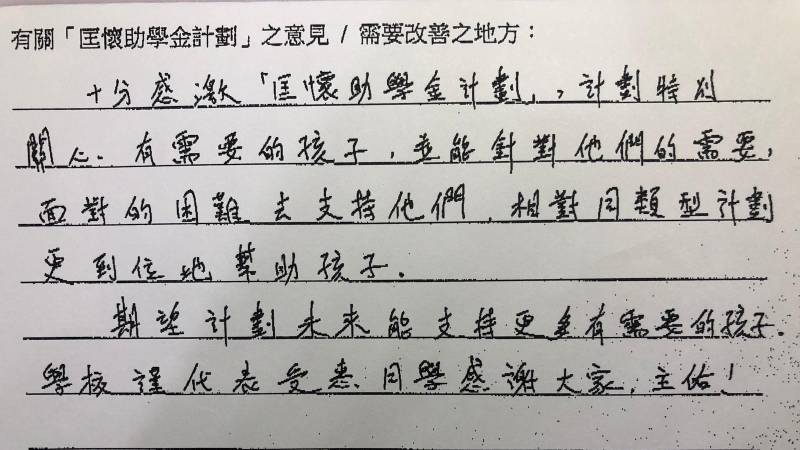 有關「匡懷助學金計劃」之意見 / 需要改善之地方：
十分感激「匡懷助學金計劃」，計劃特別
關心有需要的孩子，並能針對他們的需要，
面對的困難去支持他們，相對同類型計劃
更到位地幫助孩子。
期望計劃未來能支持更多有需要的孩子。
學校謹代表受惠同學感謝大家，主佑！